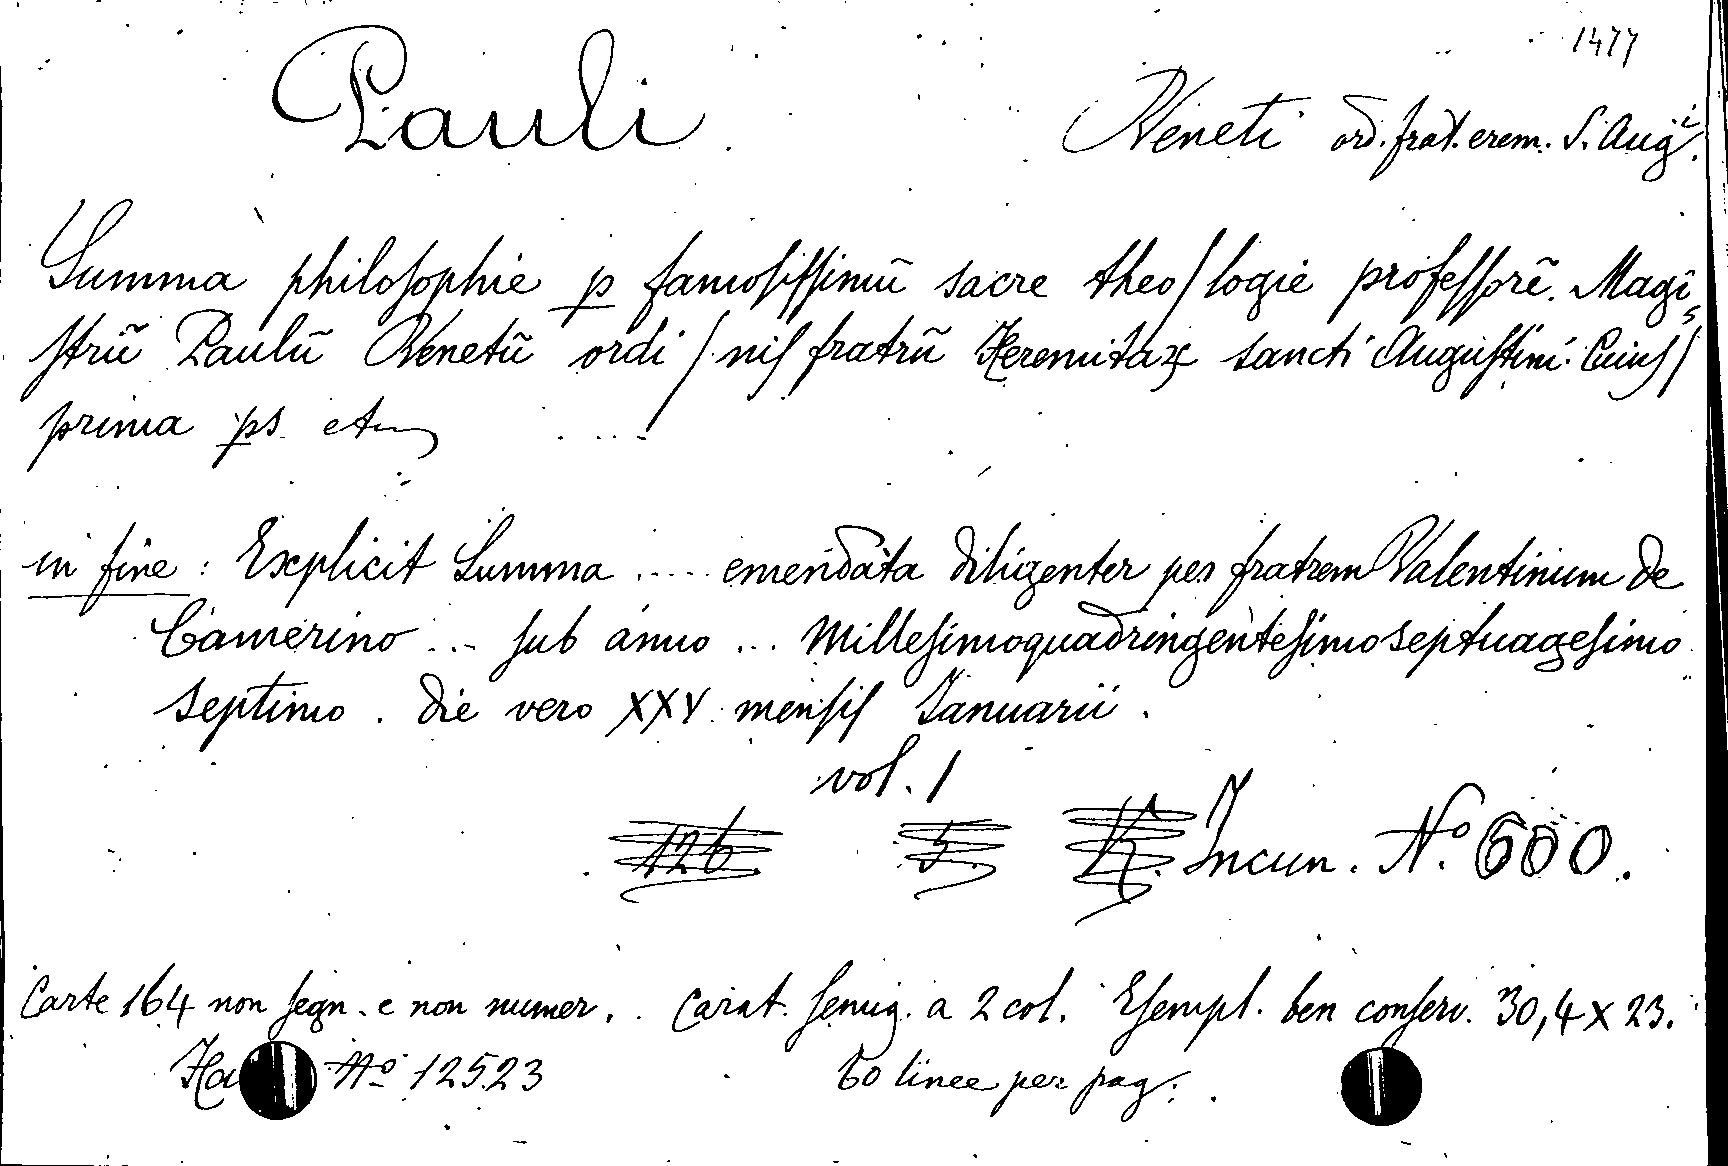 1477
Pauli Veneti ord. frat. erem. S. Augⁱ.
Summa philosophie p famosissimū sacre theo/logie professorē. Magi-
strū Paulū Venetū ordi/nis fratrū Heremitaꝝ sancti Augustini. Cuius/
prima ps. etc
in fine : Explicit Summa .... emendata diligenter per fratrem Valentinum de
Camerino ... sub anno ... Millesimoquadringentesimoseptuagesimo
septimo . die vero XXV mensis Januarii .
vol. 1
126. 5. Incun. Nº. 600.
Carte 164 non segn. e non numer. Carat. semig. a 2 col. Esempl. ben conserv. 30,4 X 23.
Nº 12523 60 linee per pag.